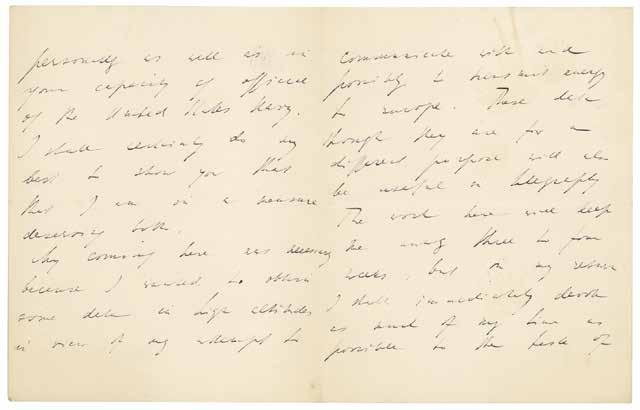 personally as well as in
your capacity of officer
of the United States Navy.
I shall certainly do my
best to show you that
that I am in a measure
deserving both.
My coming here was necessary
because I wanted to obtain
some data in high altitudes
in view of my attempt to
communicate with and
possibly to transmit energy
to Europe. These data
though they are for a
different purpose will also
be useful in telegraphy
The work here will keep
me away three to four
weeks, but on my return
I shall immediately devote
as much of my time as
possible to the task of